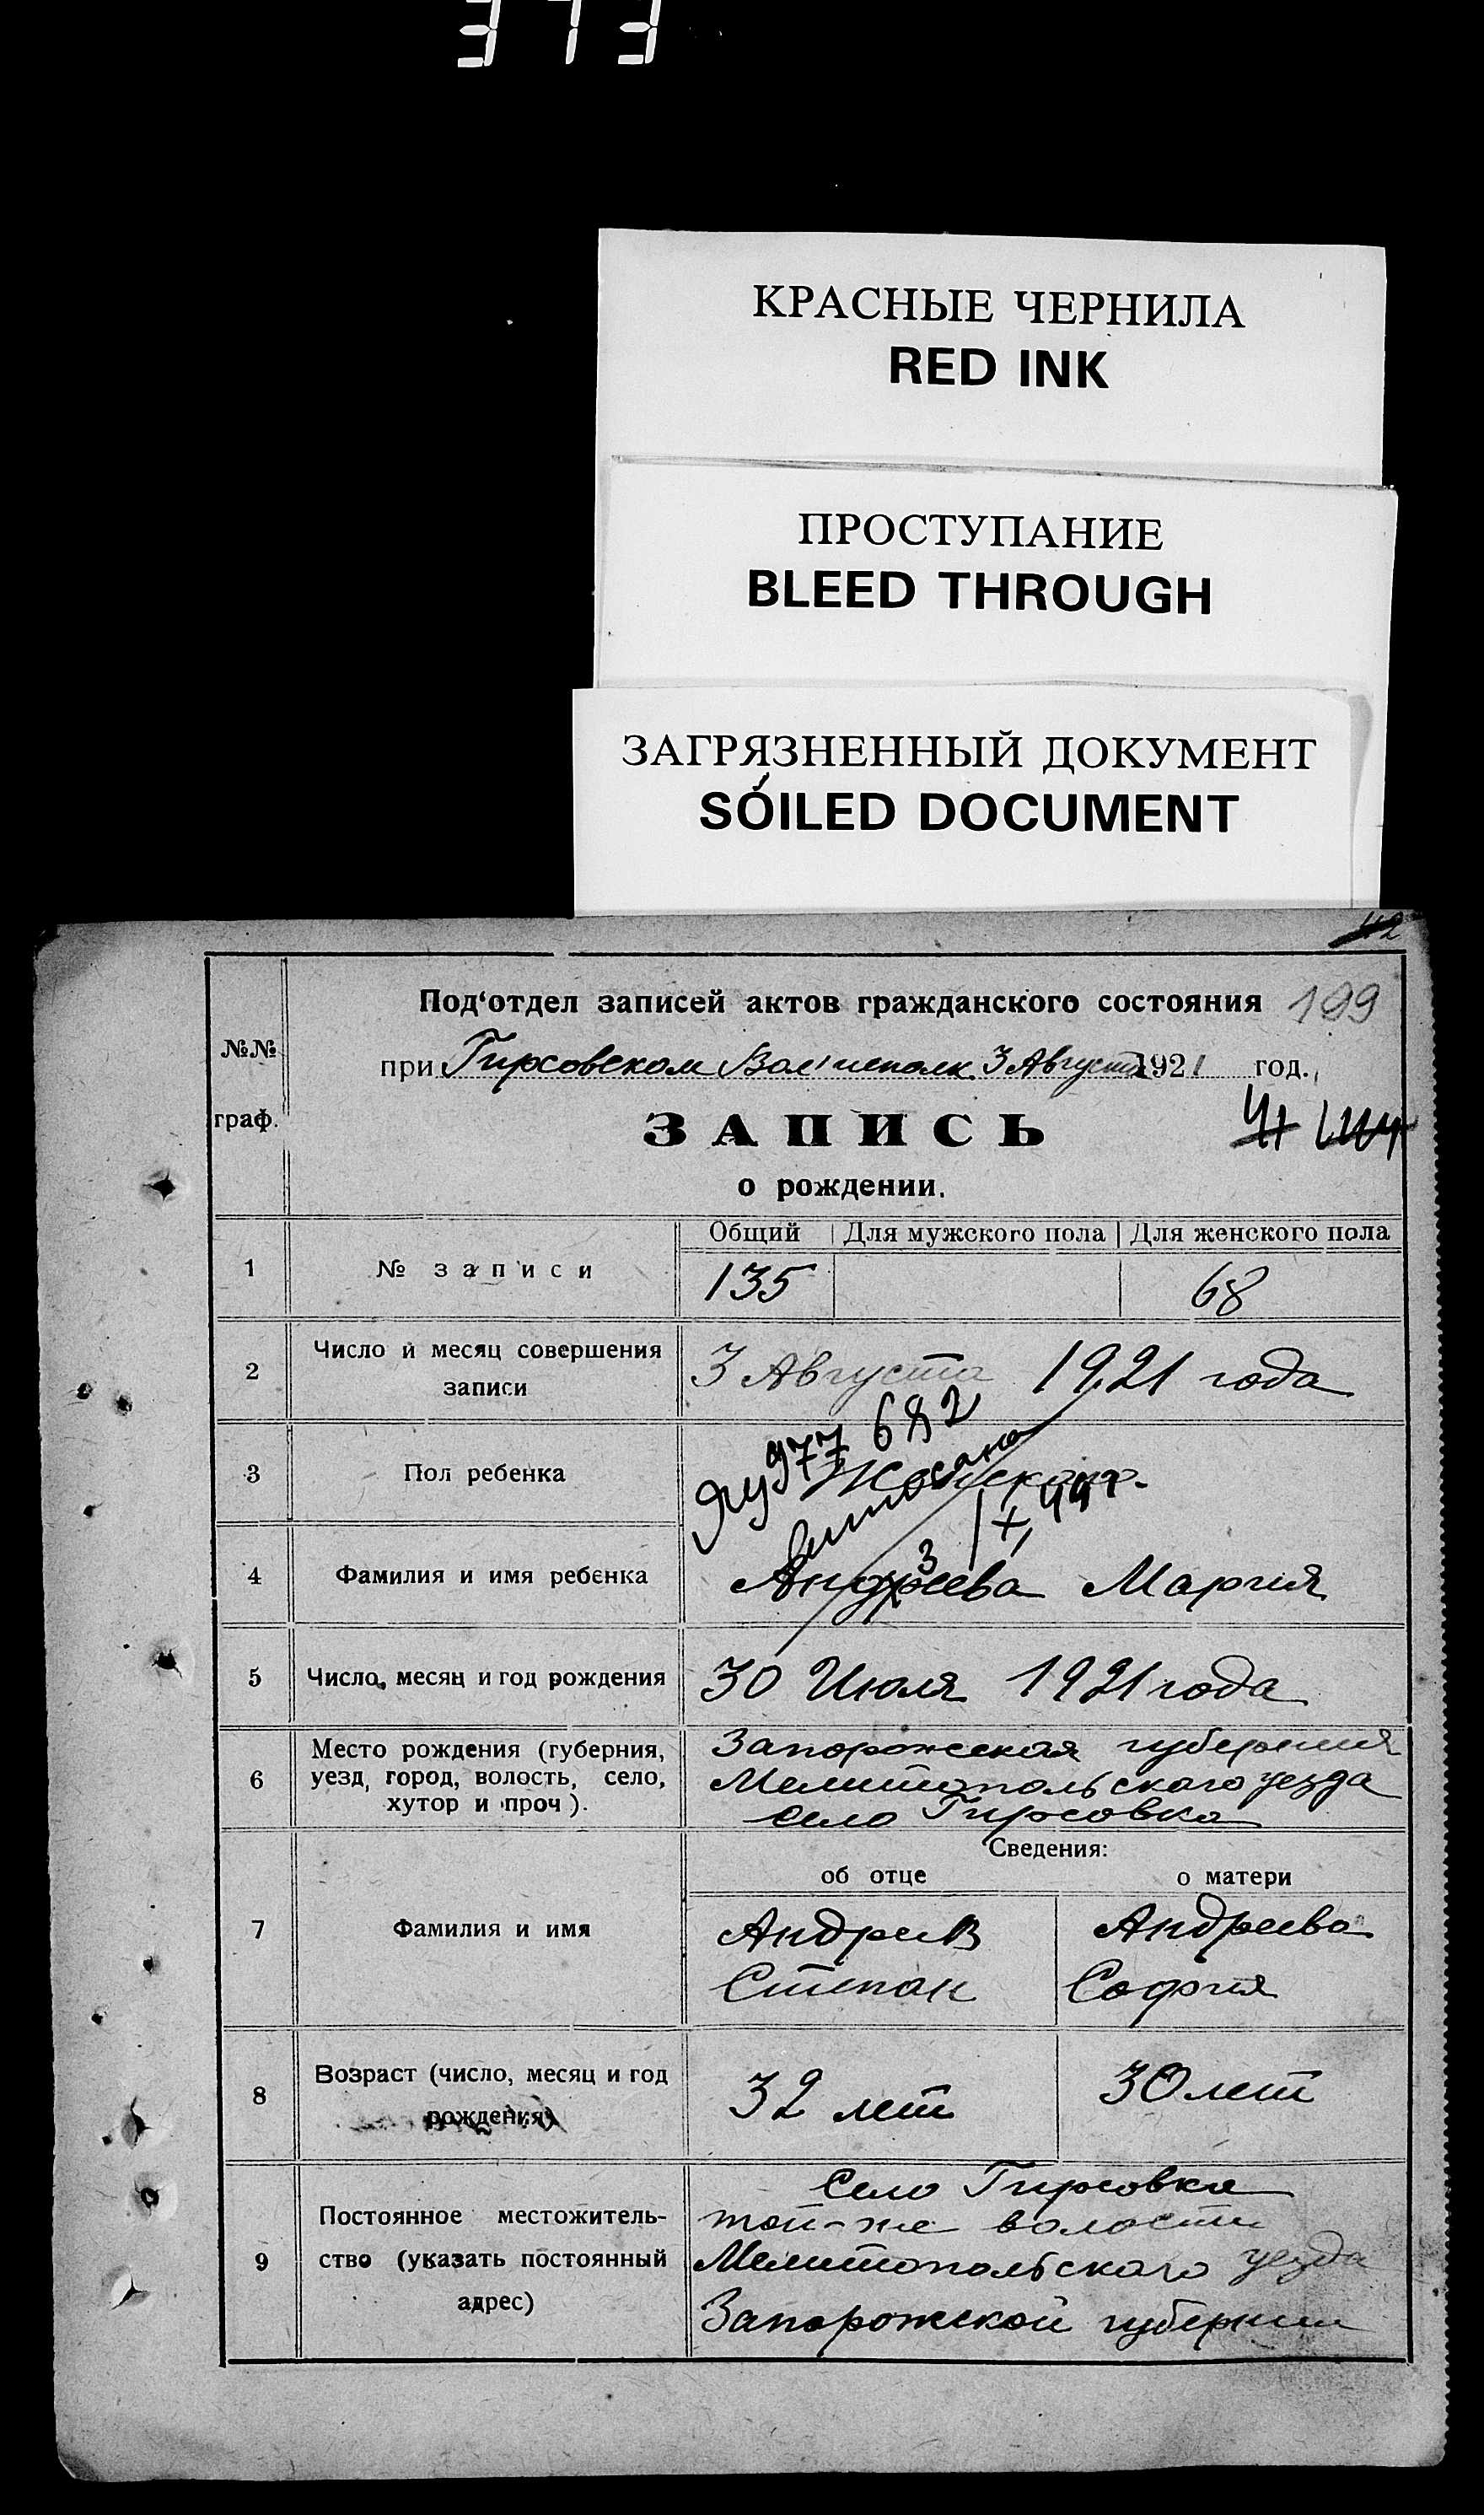 373
КРАСНЫЕ ЧЕРНИЛА
RED INK
ПРОСТУПАНИЕ
BLEED THROUGH
ЗАГРЯЗНЕННЫЙ ДОКУМЕНТ
SOILED DOCUMENT
42
Под‘отдел записей актов гражданского состояния 199
№№ граф.
при Гирсовском Вол исполк. 3 Августа 1921 год.
ЗАПИСЬ
о рождении.
Общий Для мужского пола Для женского пола
1 № записи 135 68
2 Число и месяц совершения записи 3 Августа 1921 года
977 682
выписано
3 Пол ребенка Женскаго.
3/X
4 Фамилия и имя ребенка Андреева Мария
5 Число, месяц и год рождения 30 Июля 1921 года
6 Место рождения (губерния, уезд, город, волость, село, хутор и проч). Запорожская губерния
Мелитопольского уезда
село Гирсовка
Сведения:
об отце о матери
7 Фамилия и имя Андреев Андреева
Степан София
8 Возраст (число, месяц и год рождения) 32 лет 30 лет
9 Постоянное местожительство (указать постоянный адрес) Село Гирсовка
той-же волости
Мелитопольского уезда
Запорожской губернии